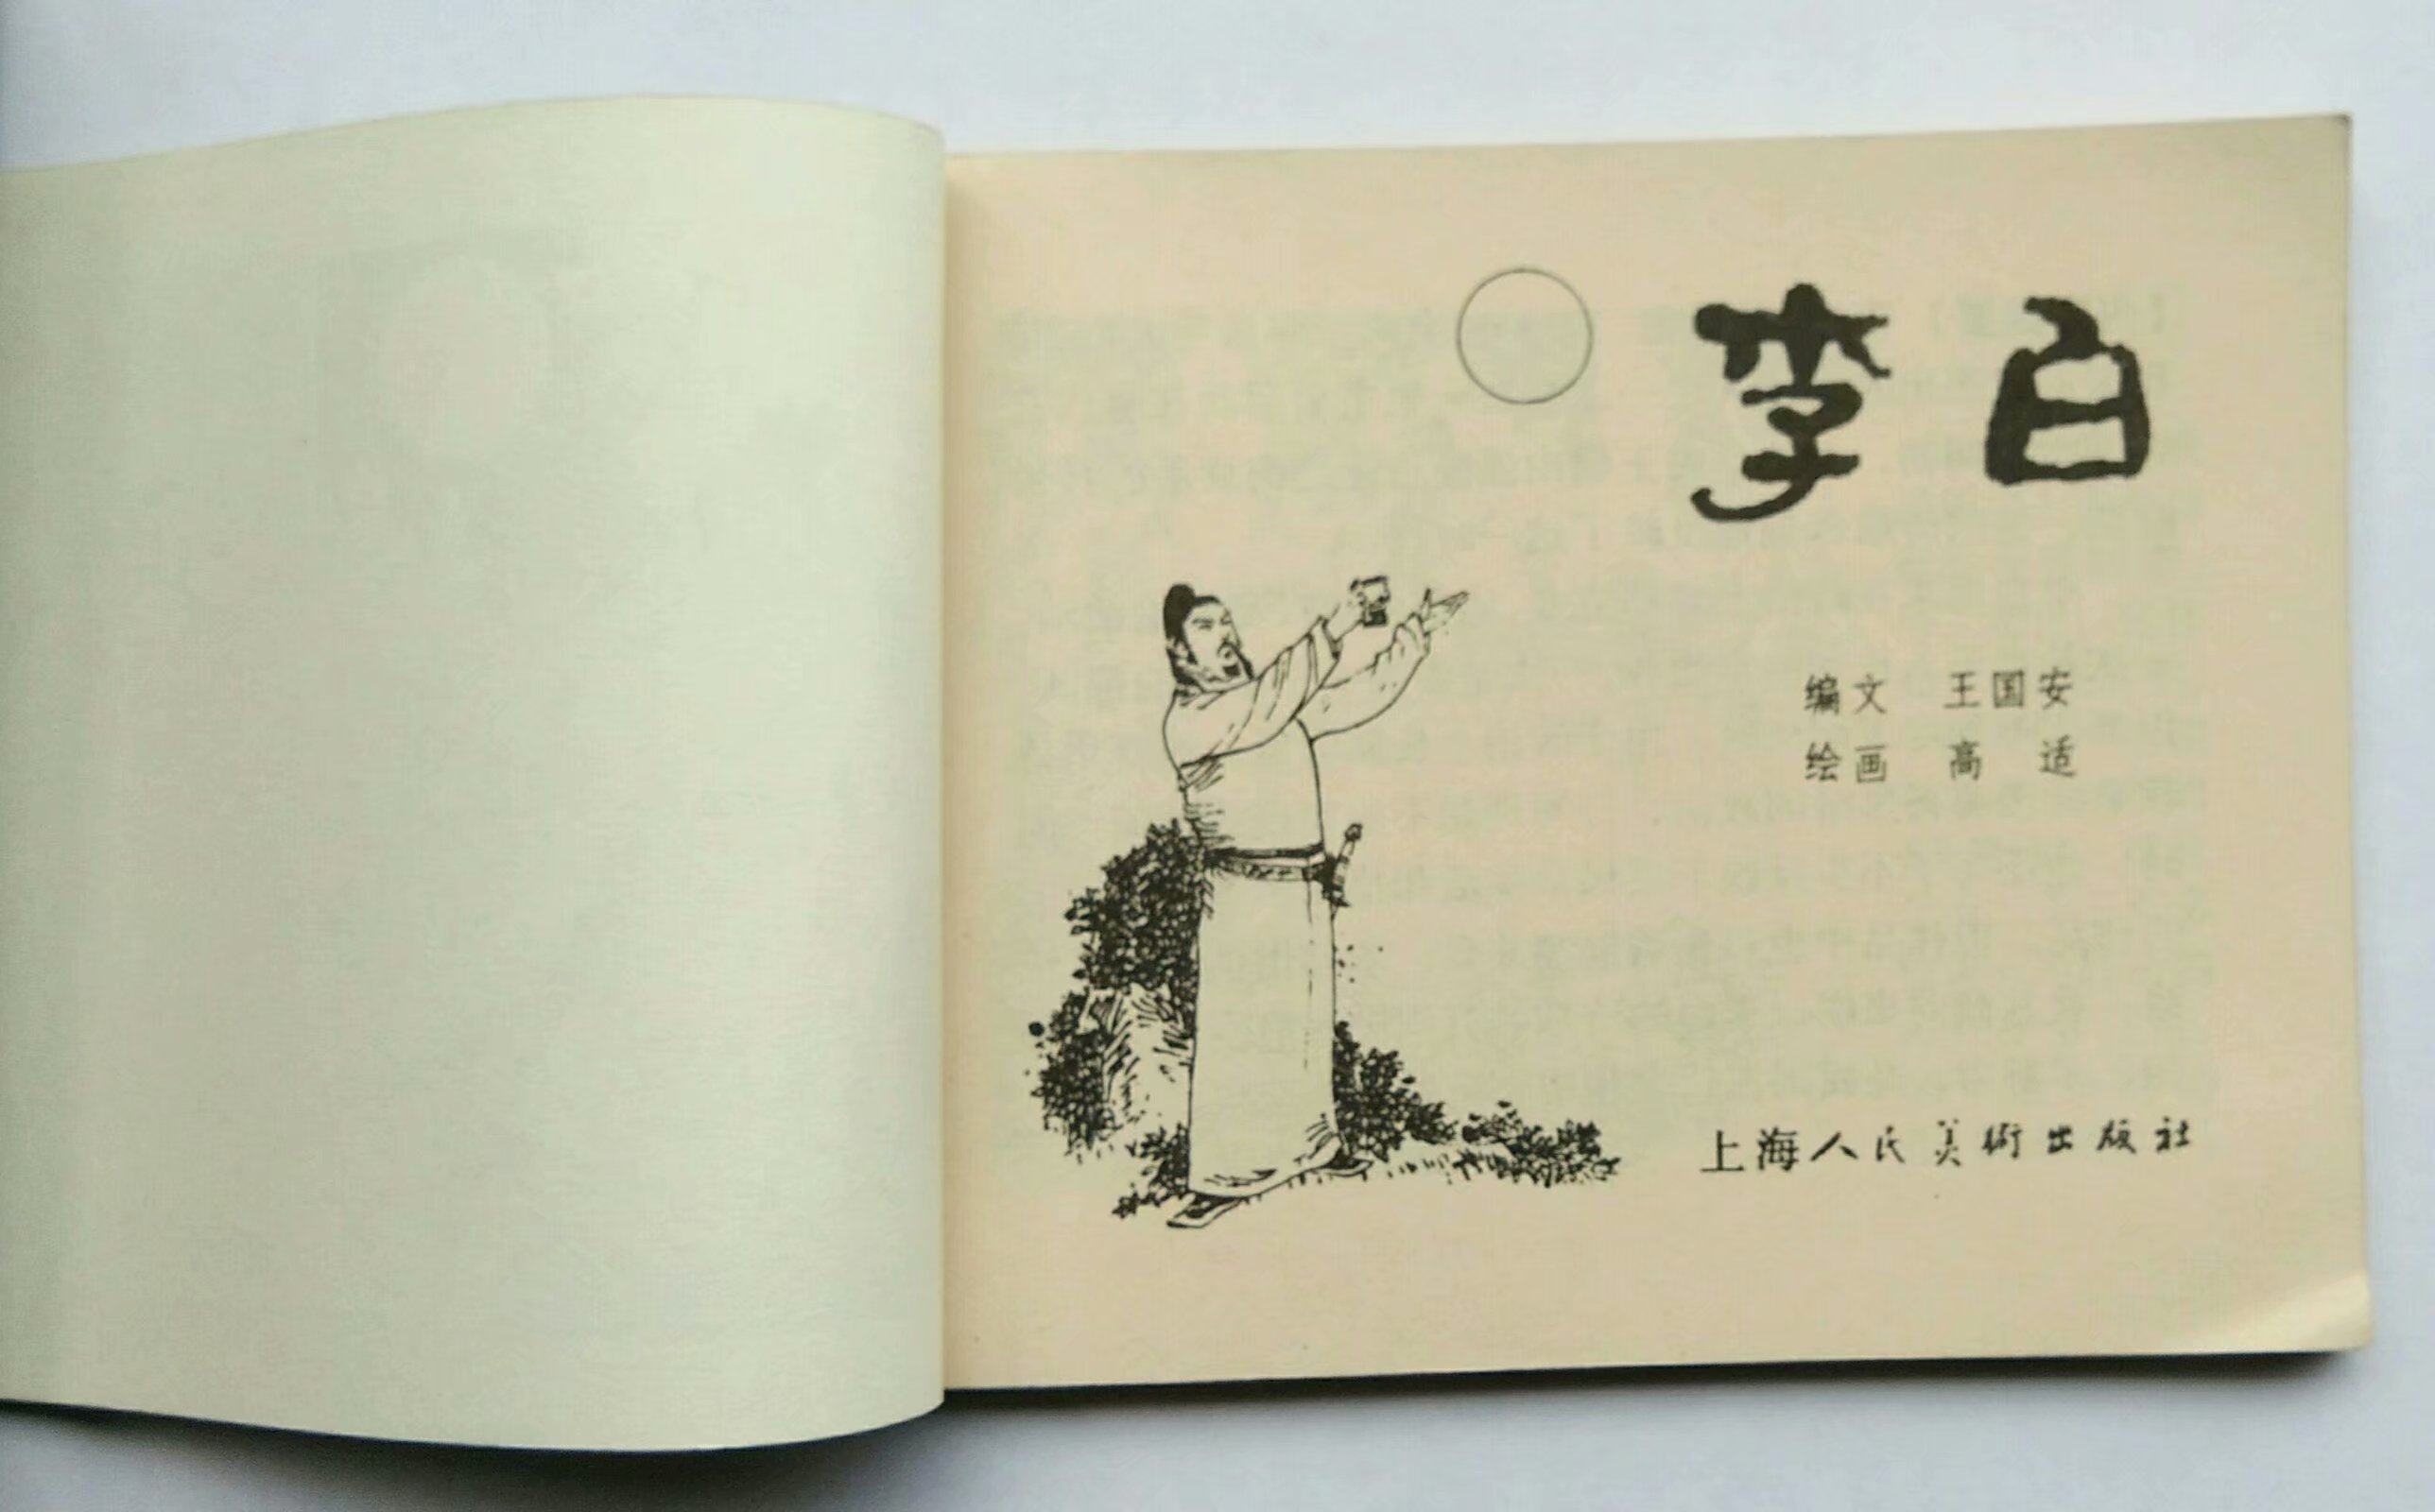 李白
编文 王国安
绘画 高 适
上海人民美術出版社